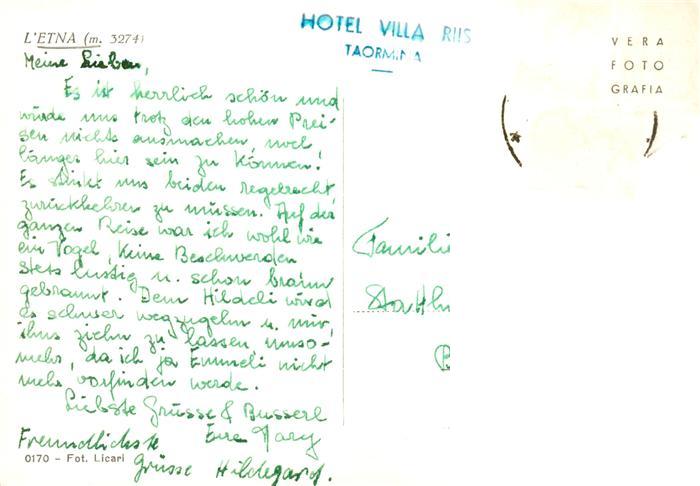 L'ETNA (m. 3274)
HOTEL VILLA RIIS
TAORMINA
VERA
FOTO
GRAFIA
Meine Lieben,
Es ist herrlich schön und
würde uns trotz den hohen Prei-
sen nichts ausmachen, noch
länger hier sein zu können!
Es stinkt uns beiden regelrecht,
zurückkehren zu müssen. Auf der
ganzen Reise war ich wohl wie
ein Vogel, keine Beschwerden
stets lustig u. schon braun
gebrannt. Dem Hildeli wird
es schwer wegzugehn u. mir,
ihns ziehn zu lassen, umso-
mehr, da ich ja Emmeli nicht
mehr vorfinden werde.
Liebste Grüsse & Busserl
Eure
Freundlichste
Grüsse Hildegard.
0170 - Fot. Licari
Familie